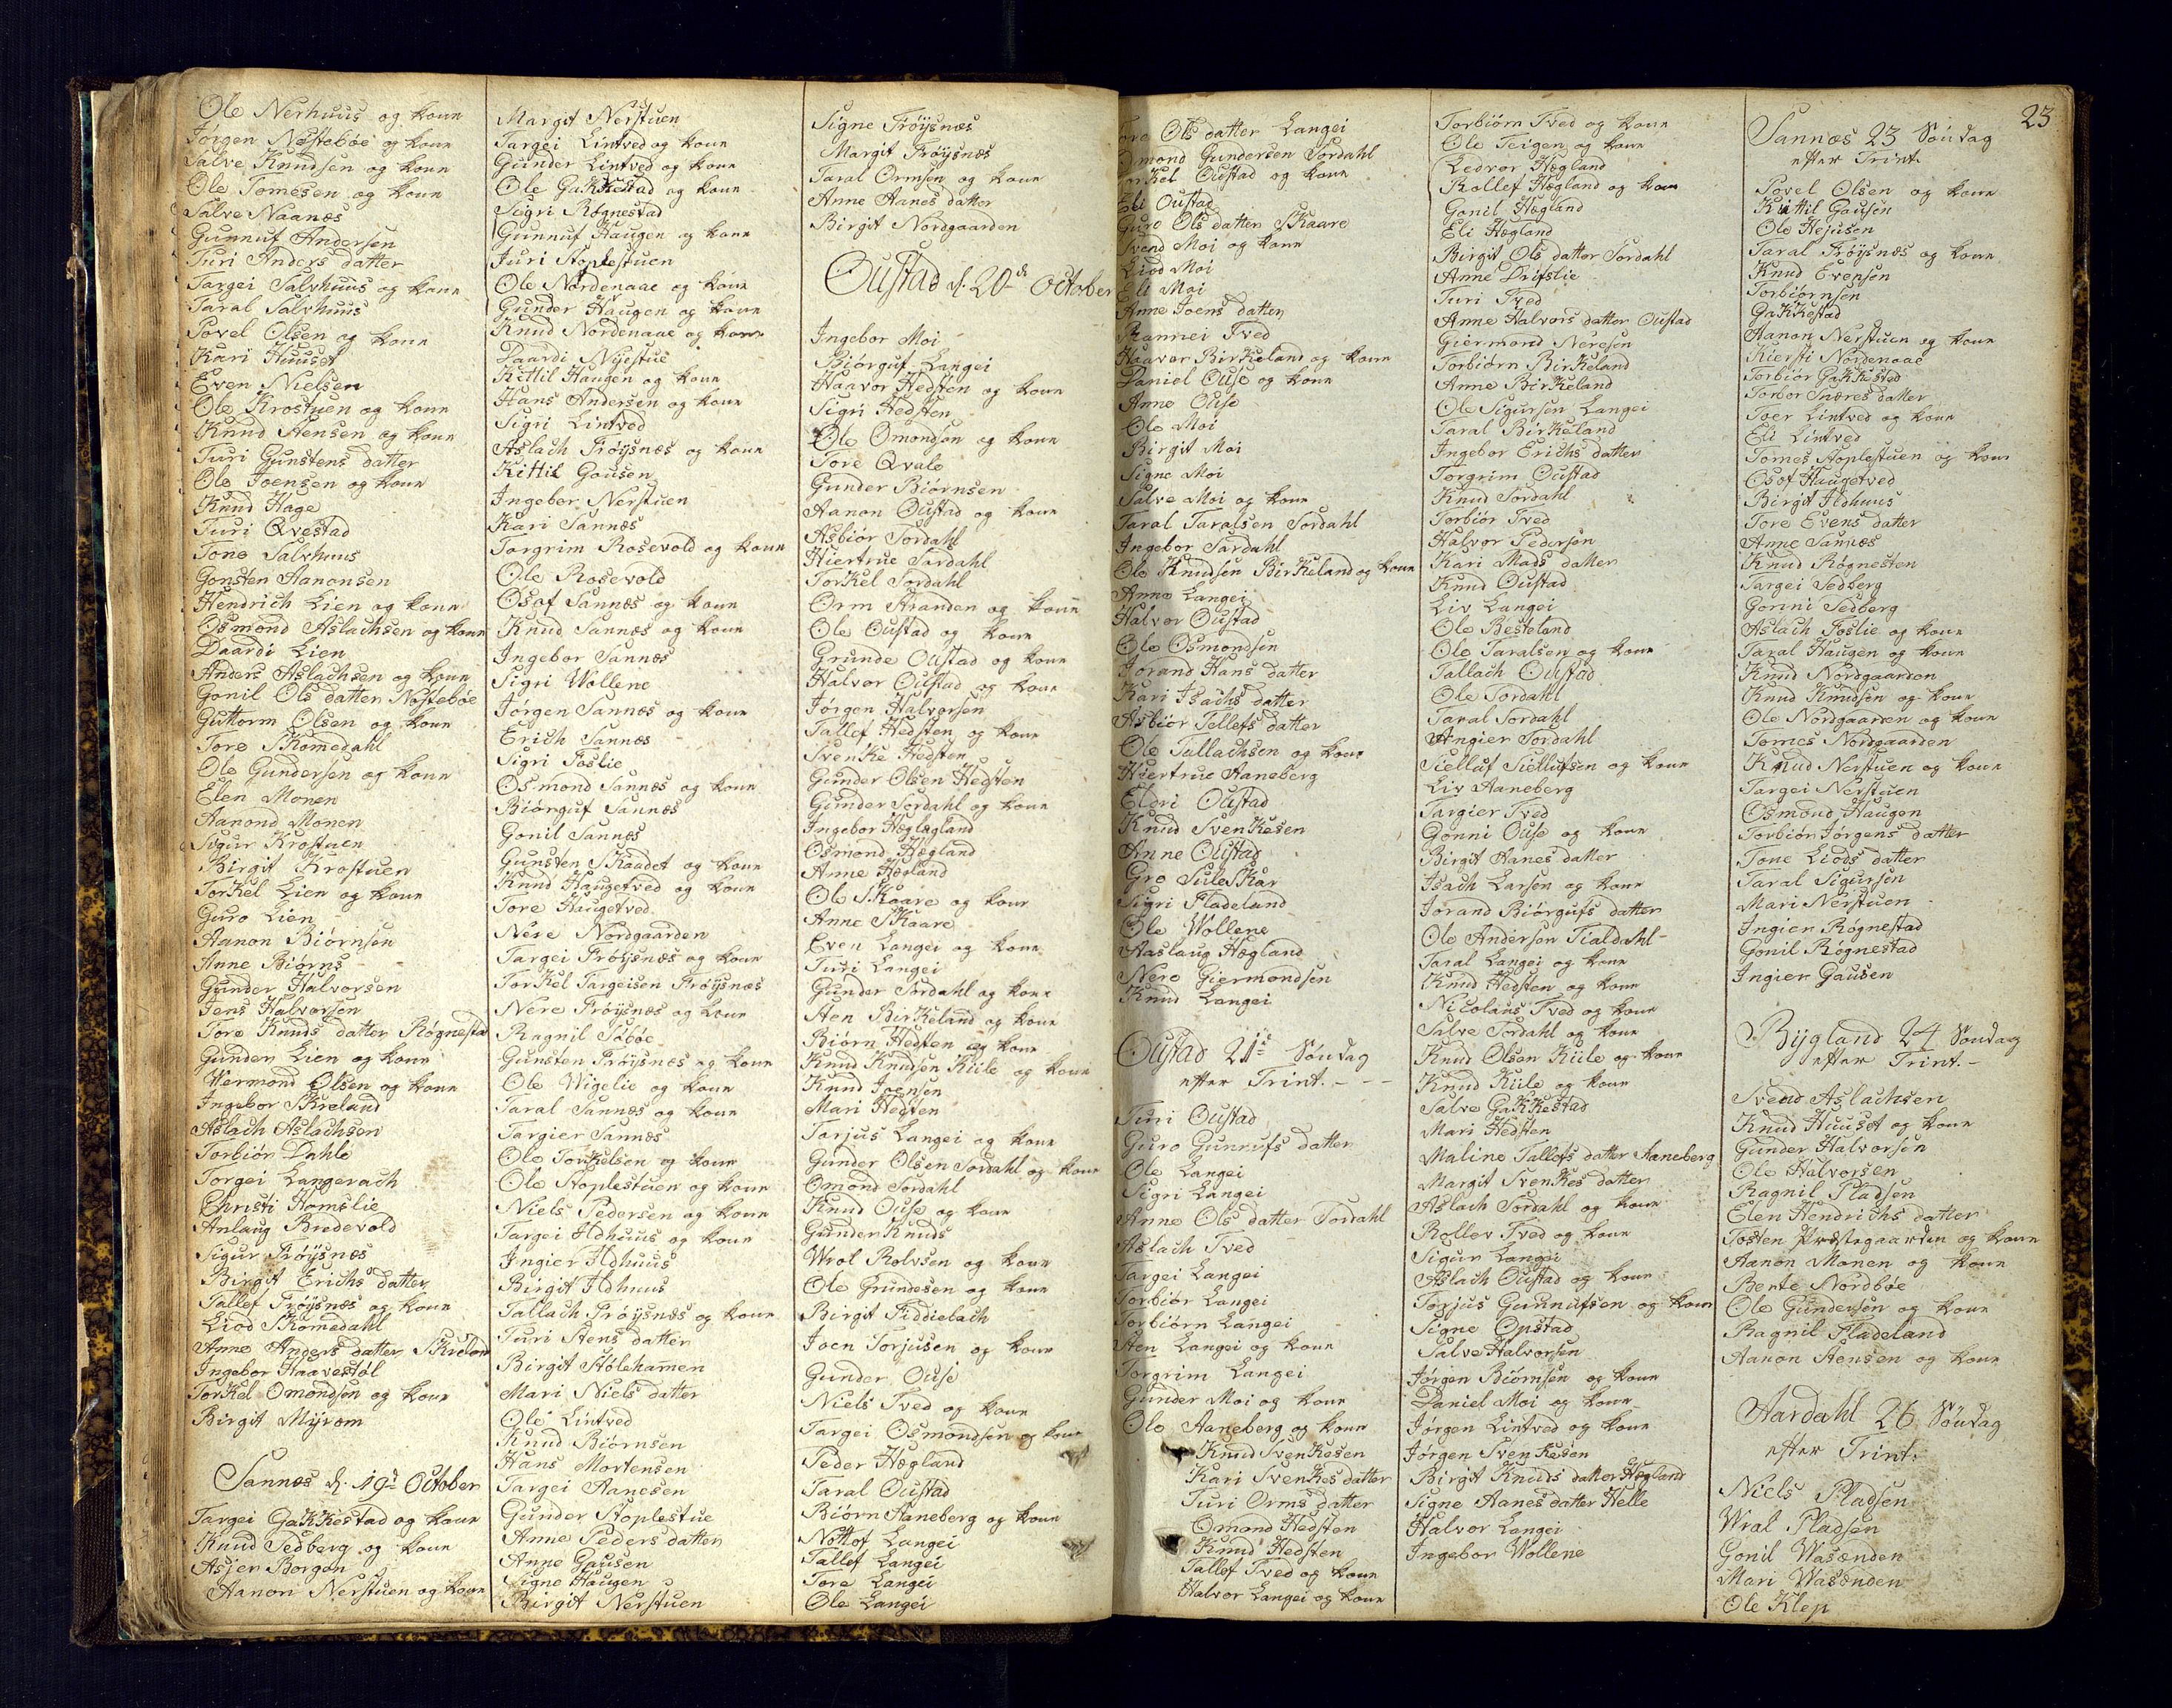 Ole Nerhuus og kone
Jörgen Nestebøe og kone
Salve Knudsen og kone
Ole Tomesen og kone
Salve Naanæs
Gunnuf Andersen
Turi Anders datter
Targei Salvhuus og kone
Taral Salvhuus
Povel Olsen og kone
Kari Huuset
Even Nielsen
Ole Krostuen og kone
Knud Stensen og kone
Turi Gunstens datter
Ole Joensen og kone
Knud Hage
Turi Qvestad
Tone Salvhuus
Gonsten Aanonsen
Hendrich Lien og kone
Osmond Aslachsen og kone
Daardi Lien
Anders Aslachsen og kone
Gonil Ols datter Nøstebøe
Guttorm Olsen og kone
Tore Skomedahl
Ole Gundersen og kone
Elen Monen
Aanond Monen
Sigur Krostuen
Birgit Krostuen
Torkel Lien og kone
Guro Lien
Aanon Biörnsen
Anne Biörns
Gunder Halvorsen
Jens Halvorsen
Tore Knuds datter Røgnesta
Gunder Lien og kone
Wermond Olsen og kone
Ingebor Skreland
Aslach Aslachsen
Torbiör Dahle
Torgei Langerach
Christi Homslie
Anlaug Bredevold
Sigur Frøysnæs
Birgit Erichs datter
Tallef Frøysnæs og kone
Liod Skomedahl
Anne Anders datter Skrelan
Ingebor Haavestøl
Torkel Omondsen og kone
Birgit Myrom
Sannes d. 19de October
Targei Gakkestad og kone
Knud Sedberg og kone
Asjer Borgon
Aanon Nerstuen og kone
Margit Nerstuen
Targei Lintved og kone
Gunder Lintved og kone
Ole Gakkestad og kone
Sigri Røgnestad
Gunnuf Haugen og kone
Juri Stoplestuen
Ole Nordenaae og kone
Gunder Haugen og kone
Knud Nordenaae og kone
Daardi Nyestue
Kittil Haugen og kone
Hans Andersen og kone
Sigri Lintved
Aslach Frøysnæs og kone
Kittil Gausen
Ingebor Nerstuen
Kari Sannæs
Torgrim Rosevold og kone
Ole Rosevold
Osof Sannæs og kone
Knud Sannæs og kone
Ingebor Sannæs
Sigri Wollene
Jörgen Sannæs og kone
Erich Sannæs
Sigri Foslie
Osmond Sannæs og kone
Biörguf Sannæs
Gonil Sannæs
Gunsten Skaadet og kone
Knud Haugetved og kone
Tore Haugetved
Nere Nordgaarden
Targei Frøysnæs og kone
Torkel Targeisen Frøysnæs
Nere Frøysnæs og kone
Ragnil Søbøe
Gunsten Frøysnæs og kone
Ole Wigelie og kone
Taral Sannæs og kone
Targier Sannæs
Ole Torkelsen og kone
Ole Stoplestuen og kone
Niels Pedersen og kone
Targei Ildhuus og kone
Ingier Ildhuus
Birgit Ildhuus
Tallach Frøysnæs og kone
Turi Stens datter
Birgit Stølehamen
Mari Niels datter
Ole Lintved
Knud Biörnsen
Hans Mortensen
Targei Aanesen
Gunder Stoplestue
Anne Peders datter
Anne Gausen
Signe Haugen
Birgit Nerstuen
Signe Frøysnæs
Margit Frøysnæs
Taral Ormsen og kone
Anne Aanes datter
Birgit Nordgaarden
Oustad d. 20de October
Ingebor Moi
Biörguf Langei
Haavor Hedsten og kone
Sigri Hedsten
Ole Omondsen og kone
Tore Qvale
Gunder Biörnsen
Aanon Oustad og kone
Asbiör Sordahl
Hiertrue Sordahl
Torkel Sordahl
Orm Stranden og kone
Ole Oustad og kone
Grunde Oustad og kone
Halvor Oustad og kone
Jörgen Halvorsen
Tallef Hedsten og kone
Svenke Hedsten
Gunder Olsen Hedsten
Gunder Sordahl og kone
Ingebor Hæglægland
Osmond Hægland
Anne Hægland
Ole Skaare og kone
Anne Skaare
Even Langei og kone
Turi Langei
Gunder Sordahl og kone
Sten Birkeland og kone
Biörn Hedsten og kone
Knud Knudsen Kiile og kone
Knud Joensen
Mari Hedsten
Torjus Langei og kone
Gunder Olsen Sordahl og kone
Omond Sordahl
Knud Ouse og kone
Gunder Knuds
Wrol Rolvsen og kone
Ole Grundesen og kone
Birgit Fiddielach
Joen Torjusen og kone
Gunder Ouse
Niels Tved og kone
Targei Osmondsen og kone
Peder Hægland
Taral Oustad
Biörn Aaneberg og kone
Nottof Langei
Tallef Langei
Tore Langei
Ole Langei
23
Tore Ols datter Langei
Omond Gundersen Sordahl
Torkel Oustad og kone
Eli Oustad
Guro Ols datter Skaare
Svend Moi og kone
Liod Moi
Eli Moi
Anne Joens datter
Rannei Tved
Haavor Birkeland og kone
Daniel Ouse og kone
Anne Ouse
Ole Moi
Birgit Moi
Signe Moi
Salve Moi og kone
Taral Taralsen Sordahl
Ingebor Sordahl
Ole Knudsen Birkeland og kone
Anne Langei
Halvor Oustad
Ole Osmondsen
Jorand Hans datter
Kari Isachs datter
Asbiör Tellefs datter
Ole Tallachsen og kone
Hiertrue Aaneberg
Eldri Oustad
Knud Svenkesen
Anne Oustad
Gro Suleskar
Sigri Fladeland
Ole Wollene
Aaslaug Hægland
Nere Giermondsen
Knud Langei
Oustad 21de Söndag
efter Trint. - - -
Turi Oustad
Guro Gunnufs datter
Ole Langei
Sigri Langei
Anne Ols datter Sordahl
Aslach Tved
Targei Langei
Torbiör Langei
Torbiörn Langei
Sten Langei og kone
Torgrim Langei
Gunder Moi og kone
Ole Aaneberg og kone
Knud Svenkesen
Kari Svenkes datter
Turi Orms datter
Omond Hedsten
Knud Hedsten
Tallef Tved og kone
Halvor Langei og kone
Torbiörn Tved og kone
Ole Teigen og kone
Ledvor Hægland
Rollef Hægland og kone
Gonil Hægland
Eli Hægland
Birgit Ols datter Sordahl
Anne Drifslie
Turi Tved
Anne Halvors datter Oustad
Giermond Neresen
Torbiörn Birkeland
Anne Birkeland
Ole Sigursen Langei
Taral Birkeland
Ingebor Erichs datter
Torgrim Oustad
Knud Sordahl
Torbiör Tved
Halvor Pedersen
Kari Mads datter
Knud Oustad
Liv Langei
Ole Besteland
Ole Taralsen og kone
Tallach Oustad
Ole Sordahl
Taral Sordahl
Angier Sordahl
Sielluf Siellufsen og kone
Liv Aaneberg
Targier Tved
Gonni Ouse og kone
Birgit Aanes datter
Isach Larsen og kone
Jorand Biörgufs datter
Ole Andersen Tialdahl
Taral Langei og kone
Knud Hedsten og kone
Nicolaus Tved og kone
Salve Sordahl og kone
Knud Olsen Kiile og kone
Knud Kiile og kone
Salve Gakkestad
Mari Hedsten
Maline Tallefs datter Aaneberg
Margit Svenkes datter
Aslach Sordahl og kone
Rollev Tved og kone
Sigur Langei
Aslach Oustad og kone
Torjus Gunnufsen og kone
Signe Opstad
Salve Halvorsen
Jörgen Biörnsen og kone
Daniel Moi og kone
Jörgen Lintved og kone
Jörgen Svenkesen
Birgit Knuds datter Hægland
Signe Aanes datter Helle
Halvor Langei
Ingebor Wollene
Sannæs 23 Söndag
efter Trint.
Povel Olsen og kone
Kittil Gausen
Ole Hejusen
Taral Frøysnæs og kone
Knud Evensen
Torbiörnsen
Gakkestad
Aanon Nerstuen og kone
Kiersti Nordenaae
Torbiör Gakkestad
Torbor Snæres datter
Toer Lintved og kone
Eli Lintved
Tomes Stoplestuen og kone
Osof Haugetved
Birgit Ildhuus
Tore Evens datter
Anne Sannæs
Knud Røgnesten
Targei Sedberg
Gonni Sedberg
Aslach Foslie og kone
Taral Haugen og kone
Knud Nordgaarden
Knud Knudsen og kone
Ole Nordgaarden og kone
Tomes Nordgaarden
Knud Nerstuen og kone
Targei Nerstuen
Osmond Haugen
Torbiör Jørgens datter
Tone Liods datter
Taral Sigursen
Mari Nerstuen
Ingier Røgnestad
Gonil Røgnestad
Ingier Gausen
Bygland 24 Söndag
efter Trint. -
Svend Aslachsen
Knud Huuset og kone
Gunder Halvorsen
Ole Halvorsen
Ragnil Pladsen
Elen Hendrichs datter
Tosten Præstegaarden og kone
Aanon Monen og kone
Berte Nordbøe
Ole Gundersen og kone
Ragnil Fladeland
Aanon Stensen og kone
Aardahl 26. Söndag
efter Trint.
Niels Pladsen
Wral Pladsen
Gonil Wasenden
Mari Wasenden
Ole Klep